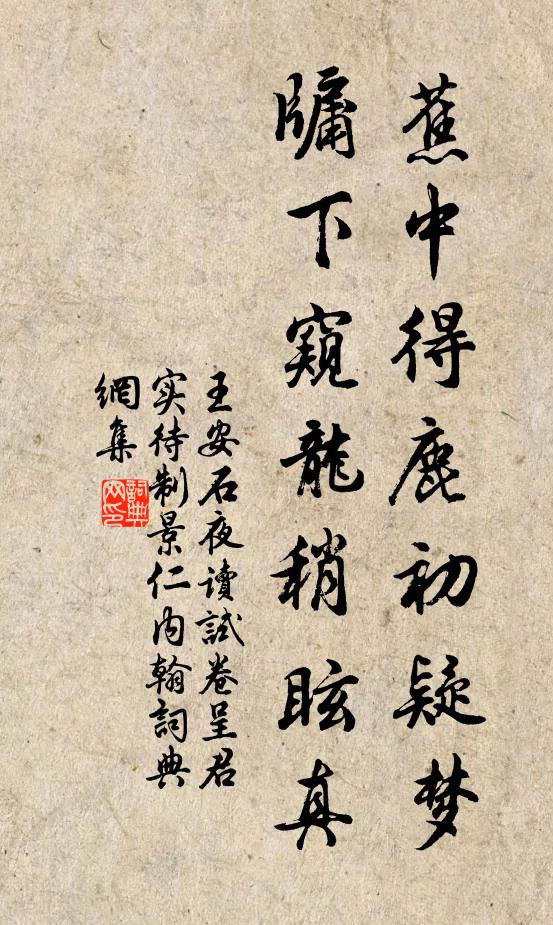 蕉中得鹿初疑梦
牖下窥龍稍眩真
王安石夜讀試卷呈君
实待制景仁内翰詞典
網集
詞典网印